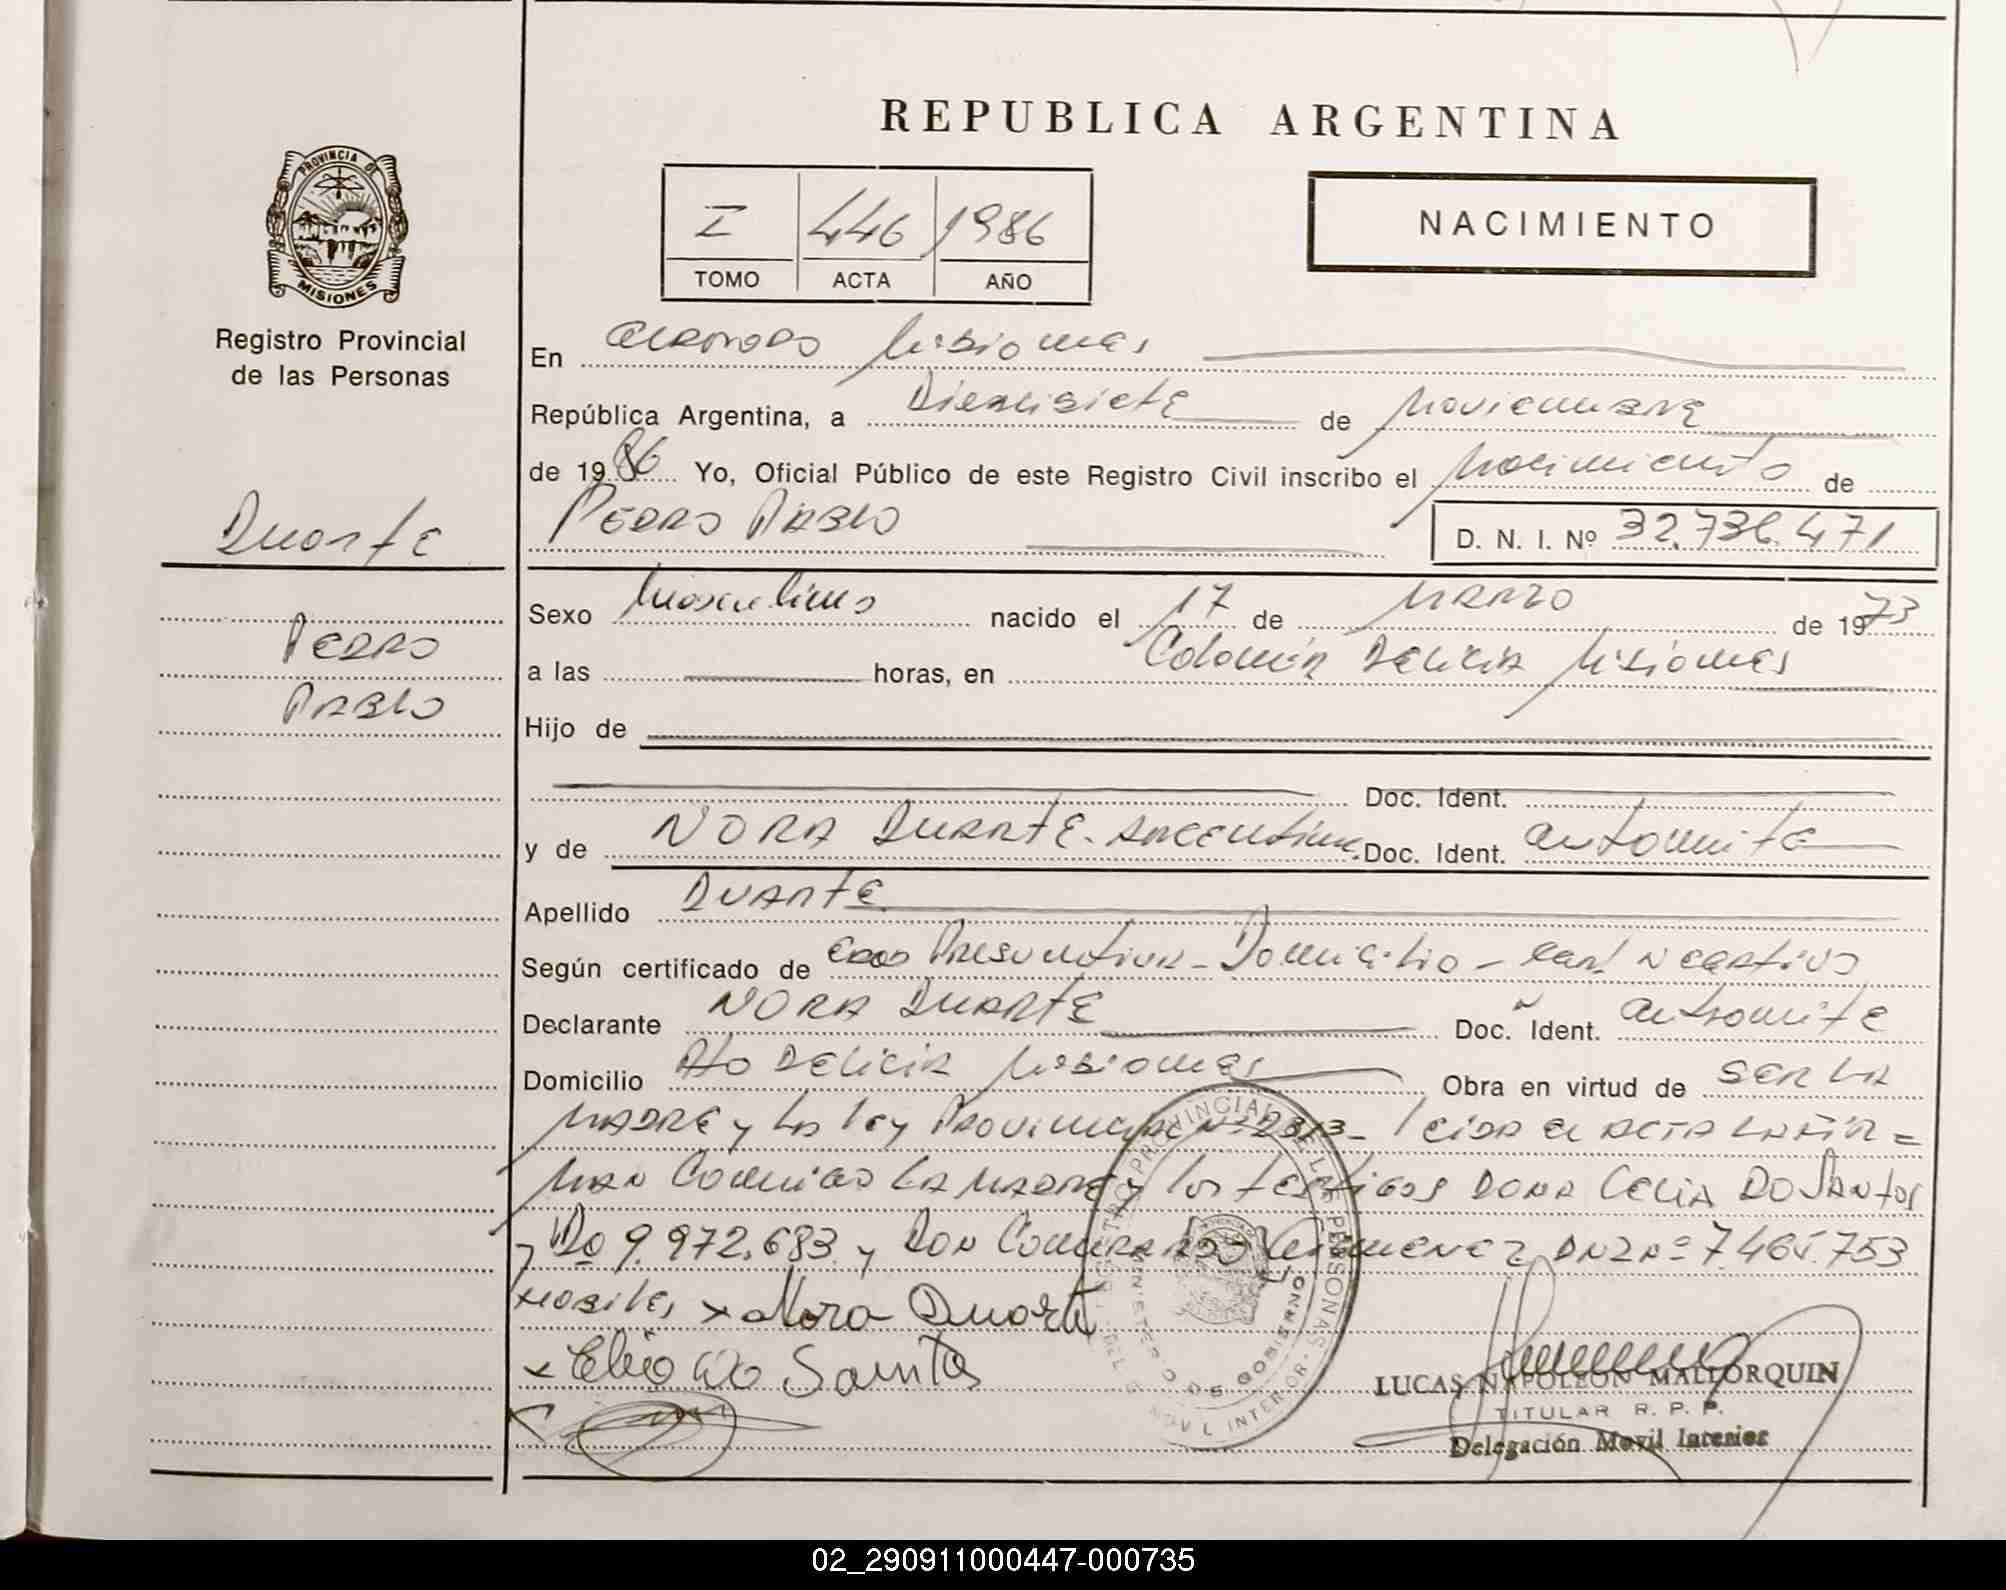 REPUBLICA ARGENTINA
PROVINCIA DE
MISIONES
Registro Provincial
de las Personas
I 446 1986
TOMO ACTA AÑO
NACIMIENTO
En Eldorado Misiones
República Argentina, a Diecisiete de Noviembre
de 1986 Yo, Oficial Público de este Registro Civil inscribo el Nacimiento de
Duarte
Pedro Pablo D. N. I. Nº 32.736.471
Pedro
Pablo
Sexo Masculino nacido el 17 de Marzo de 1973
a las horas, en Colonia Delicia Misiones
Hijo de
Doc. Ident.
y de NORA DUARTE - Argentina. Doc. Ident.
Apellido DUARTE
Según certificado de Edad Presuntiva - Domicilio - Cert Negativo
Declarante NORA DUARTE Doc. Ident.
Domicilio Delicia Misiones Obra en virtud de SER LA
MADRE y La Ley Provincial Nº 2313 - Leida el ACTA LA FIR=
MAN Conmigo LA MADRE y los testigos DOÑA Celia DO SANtos
9.972.683 y DON GIMENEZ DNI Nº 7.465.753
habiles x Nora Duarte
x Do Santos
REGISTRO PROVINCIAL DE LAS PERSONAS
MINISTERIO DE GOBIERNO
MOVIL INTERIOR
LUCAS NAPOLEON MALLORQUIN
TITULAR R. P. P.
Delegación Movil Interior
02_290911000447-000735